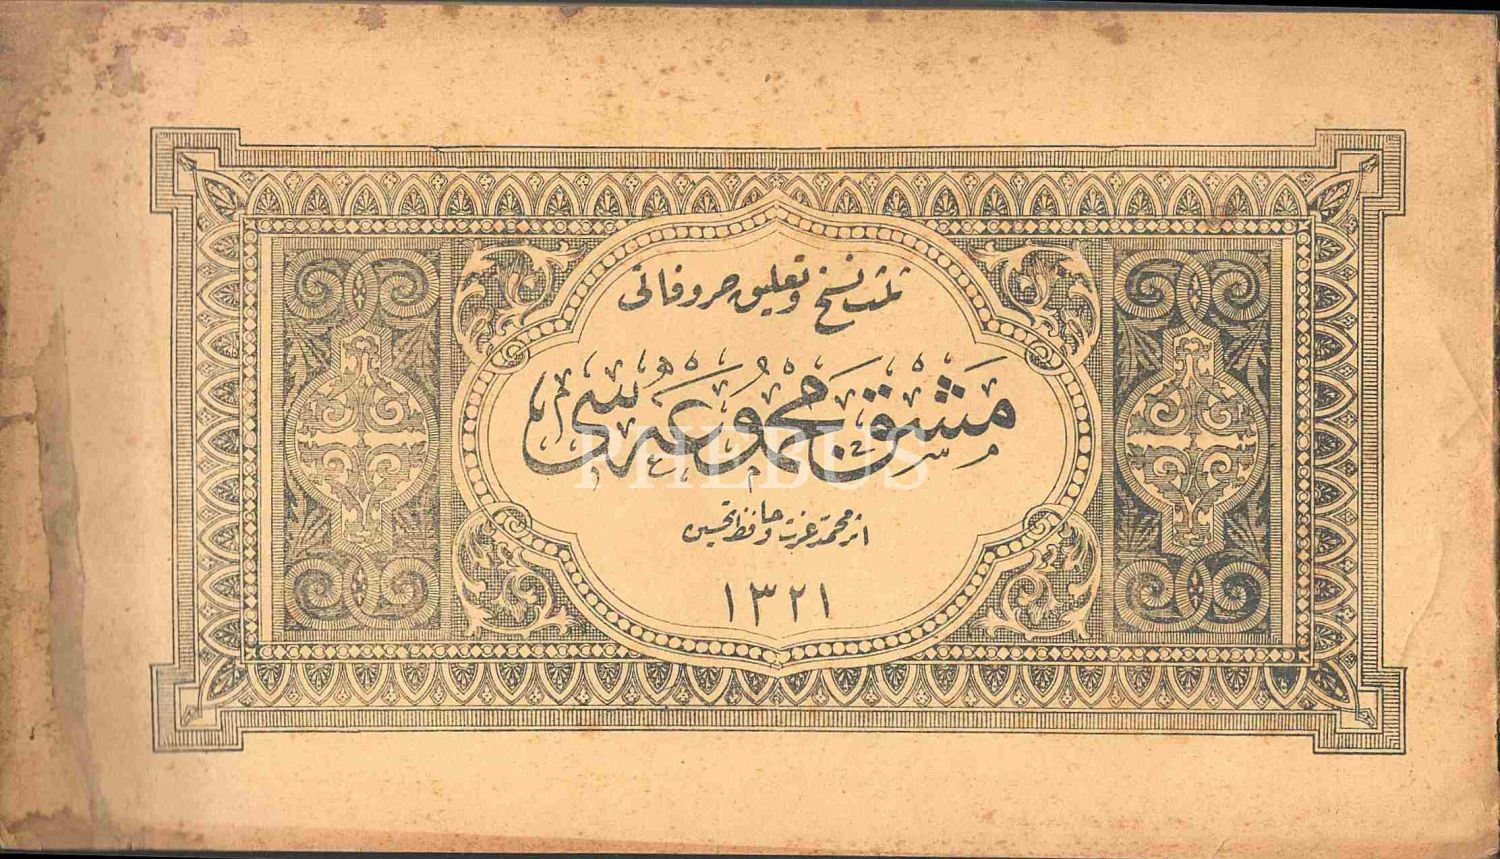 ثلث نسخ و تعليق حروفاتى
مَشْقْ مَجْمُوعَهْ سِى
اثر محمد عزت و حافظ تحسين
١٣٢١
PHEBUS